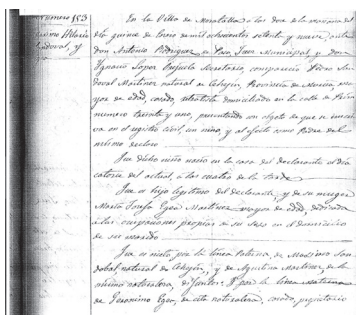 Numero 153
Hilario
Sandoval, y
En la Villa de Moratalla a las doce de la mañana del
dia quince de Enero de mil ochocientos setenta y nueve, ante
Don Antonio Rodriguez de Juez Municipal, y don
Ignacio Lopez Secretario, comparecio Pedro San
doval Martinez natural de Cehegin, Provincia de Murcia, ma
yor de edad, casado, domiciliado en la calle de
numero treinta y uno, presentando con objeto de que se inscri
va en el registro civil, un niño, y al efecto como Padre del
mismo declaro
Que dicho niño nacio en la casa del declarante el dia
catorce del actual, a las cuatro de la tarde
Que es hijo legitimo del declarante, y de su muger
Maria Josefa Egea Martinez mayor de edad, dedicada
a las ocupaciones propias de su sexo en el domicilio
de su marido
Que es nieto, por la linea Paterna, de Maximo San
dobal, natural de Cehegin, y de Agustina Martinez, de la
misma naturaleza, difuntos. Y por la linea materna
de Geronimo Egea, de esta naturaleza, casado, propietario